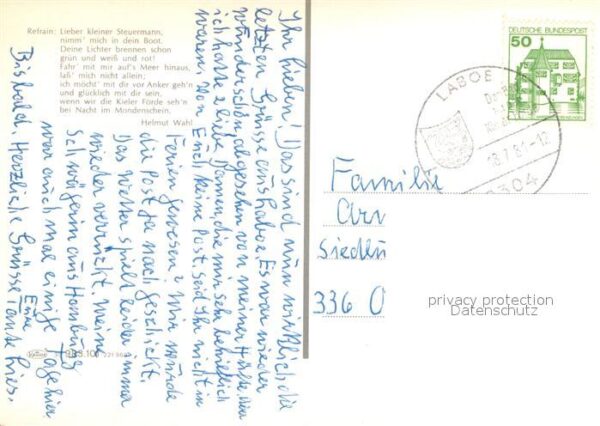 Refrain: Lieber kleiner Steuermann,
nimm' mich in dein Boot.
Deine Lichter brennen schon
grün und weiß und rot!
Fahr' mit mir auf's Meer hinaus,
laß' mich nicht allein;
ich möcht' mit dir vor Anker geh'n
und glücklich mit dir sein,
wenn wir die Kieler Förde seh'n
bei Nacht im Mondenschein.
Helmut Wahl
Ihr Lieben! Das sind nun wirklich die
letzten Grüsse aus Laboe. Es war wieder
wunderschön, abgesehen von meiner Hüfte. Aber
ich hatte 2 liebe Damen, die mir sehr behilflich
waren. Von Euch keine Post, seid Ihr nicht in
Ferien gewesen? Mir wurde
die Post ja nach geschickt.
Das Wetter spielt leider immer
wieder verrückt. Meine
Schwägerin aus Hamburg
war auch mal einige Tage hier
Bis bald, Herzliche Grüsse Eure Tante Lies.
DEUTSCHE BUNDESPOST
50
LABOE
18.7.81-12
2304
Familie
Siedlu
336 O
privacy protection
Datenschutz